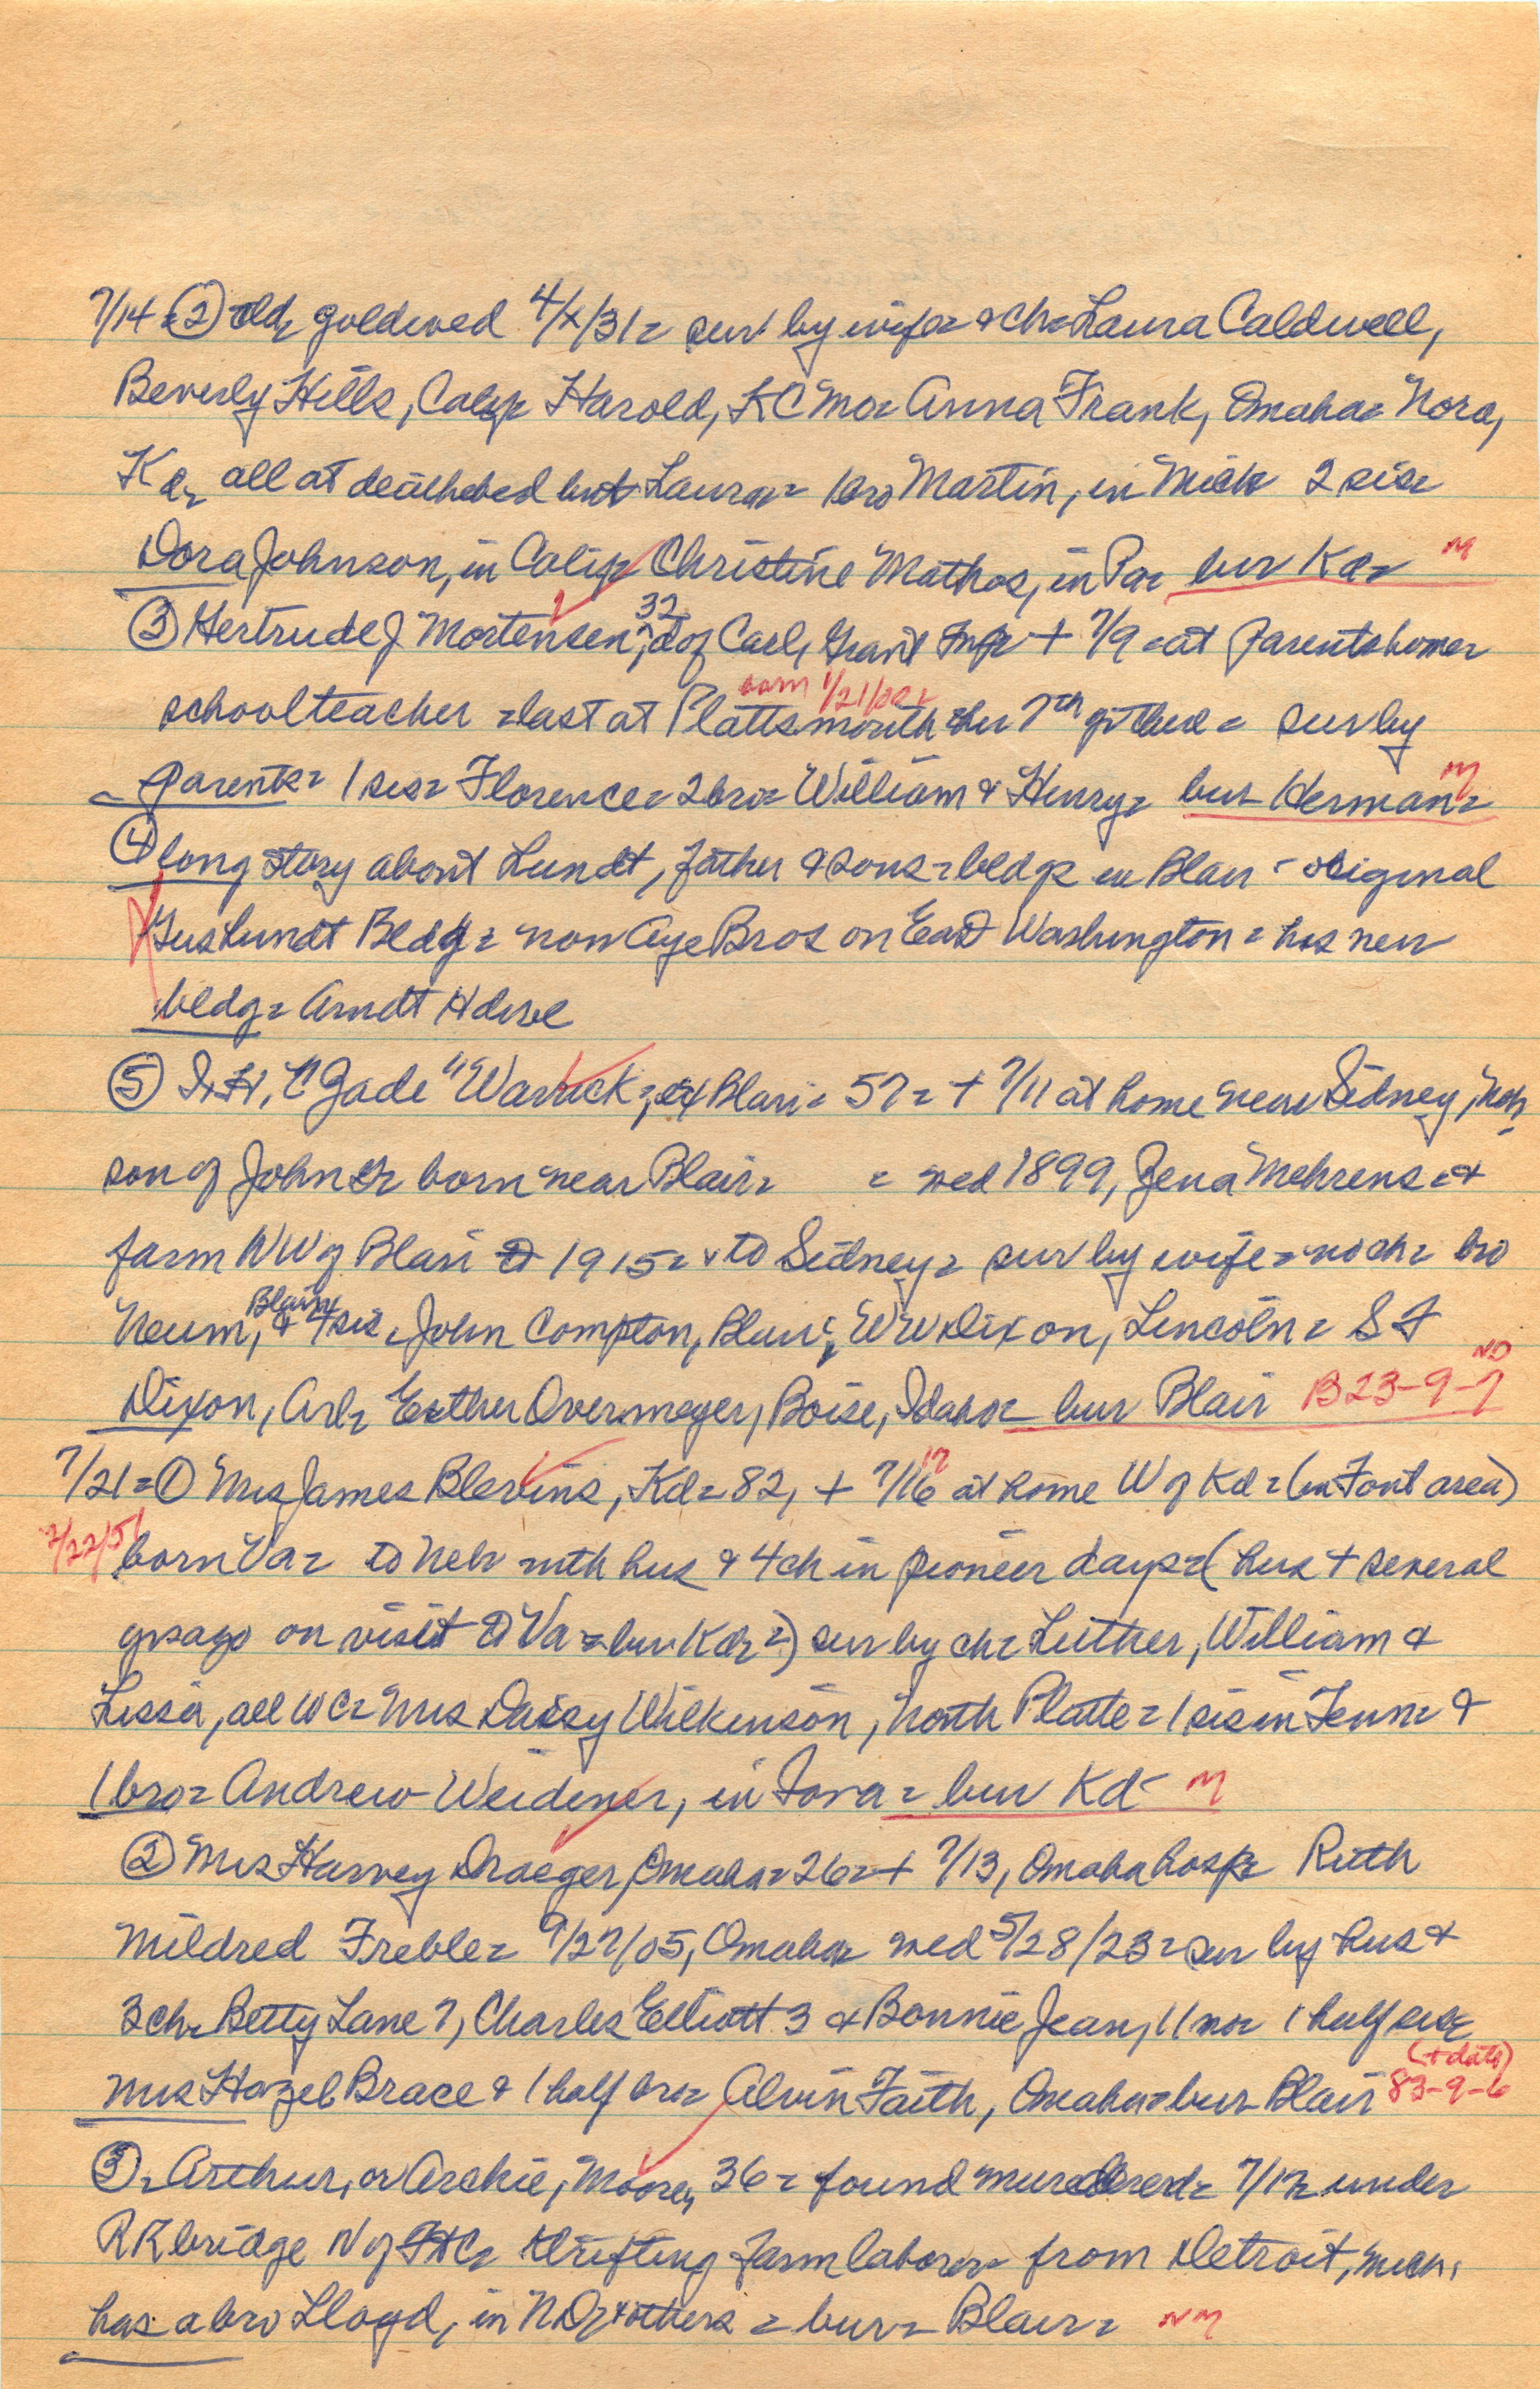 7/14 = ② old = goldwed 4/x/31 = surv by wife = & ch = Laura Caldwell,
Beverly Hills, Calif = Harold, KC Mo = Anna Frank, Omaha = Nora,
Kd = all at deathbed but Laura = 1 bro Martin, in Mich 2 sis =
Dora Johnson, in Calif = Christine Mathos, in Pa = bur Kd = M
③ Gertrude J Mortensen, 32 d of Carl, Grant Twp = + 7/9 = at parents home =
born 1/21/
schoolteacher = last at Plattsmouth = her 7th = surv by
parents = 1 sis = Florence = 2 bro = William & Henry = bur Herman = M
④ long story about Lundt, father & sons = bldgs in Blair = original
Gus Lundt Bldg = now Aye Bros on East Washington = his new
bldg = Arndt Hdwe
⑤ I. H. "Gade" Warrick, ex Blair = 57 = + 7/11 at home near Sidney, Neb
son of John = born near Blair = = wed 1899, Zena Mehrens = &
farm NW of Blair to 1915 = to Sidney = surv by wife = no ch = bro
Neum, Blair & 4 sis = John Compton, Blair; WW Dixon, Lincoln = S F
Dixon, Arl = Esther Overmeyer, Boise, Idaho = bur Blair B23-9-7 ND
7/21 = ① Mrs James Blevins, Kd = 82, + 7/16 17 at home W of Kd = (in Font area)
7/22/51
born Va = to Neb with hus & 4 ch in pioneer days = (hus + several
yrs ago on visit to Va = bur Kd =) surv by ch = Luther, William &
Lissa, all WC = Mrs Daisy Wilkinson, North Platte = 1 sis in Tenn = &
1 bro = Andrew Weidener, in Iowa = bur Kd - M
② Mrs Harvey Draeger, Omaha = 26 = + 7/13, Omaha hosp = Ruth
Mildred Freble = 9/27/05, Omaha = wed 5/28/23 = surv by hus &
3 ch = Betty Lane 7, Charles Elliott 3 & Bonnie Jean, 11 mo = 1 half sis =
Mrs Hazel Brace & 1 half bro = Alvin Faith, Omaha = bur Blair (+ date) 83-9-6
③ = Arthur, or Archie, Moore, 36 = found murdered = 7/17 = under
RR bridge N of FtC = drifting farm laborer = from Detroit, Mich,
has a bro Lloyd, in ND, & others = bur = Blair = NM